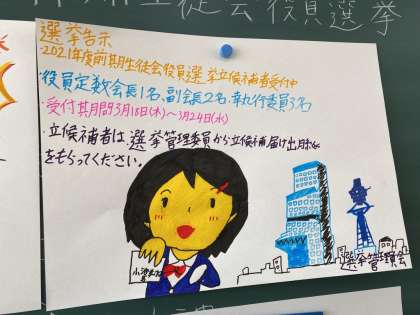 生徒会役員選挙
選挙告示
・2021年度前期生徒会役員選挙立候補者受付中
・役員定数会長1名、副会長2名、執行委員3名
・受付期間3月18日(木)～3月24日(水)
・立候補者は選挙管理委員から立候補届け出用紙
をもらってください。
選挙管理委員会